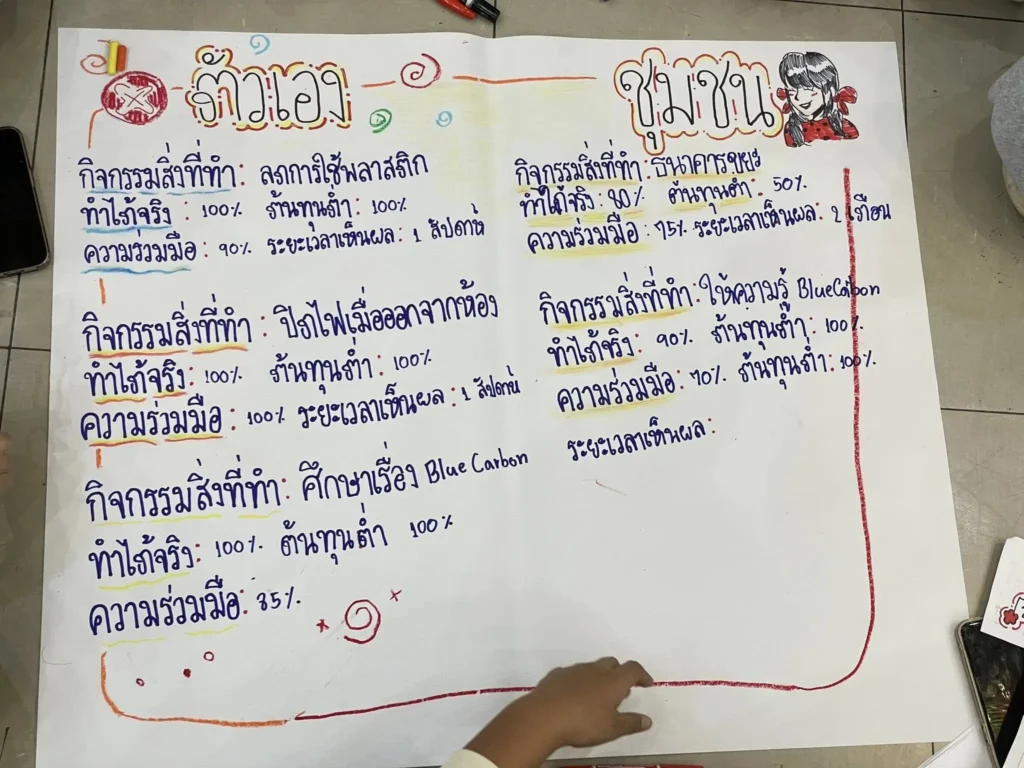 ตัวเอง
กิจกรรมสิ่งที่ทำ: ลดการใช้พลาสติก
ทำได้จริง: 100% ต้นทุนต่ำ: 100%
ความร่วมมือ: 90% ระยะเวลาเห็นผล: 1 สัปดาห์
กิจกรรมสิ่งที่ทำ: ปิดไฟเมื่อออกจากห้อง
ทำได้จริง: 100% ต้นทุนต่ำ: 100%
ความร่วมมือ: 100% ระยะเวลาเห็นผล: 1 สัปดาห์
กิจกรรมสิ่งที่ทำ: ศึกษาเรื่อง Blue Carbon
ทำได้จริง: 100% ต้นทุนต่ำ 100%
ความร่วมมือ: 85%
ชุมชน
กิจกรรมสิ่งที่ทำ: ธนาคารขยะ
ทำได้จริง: 80% ต้นทุนต่ำ: 50%
ความร่วมมือ: 75% ระยะเวลาเห็นผล: 2 เดือน
กิจกรรมสิ่งที่ทำ: ให้ความรู้ BlueCarbon
ทำได้จริง: 90% ต้นทุนต่ำ: 100%
ความร่วมมือ: 70% ต้นทุนต่ำ: 100%
ระยะเวลาเห็นผล: